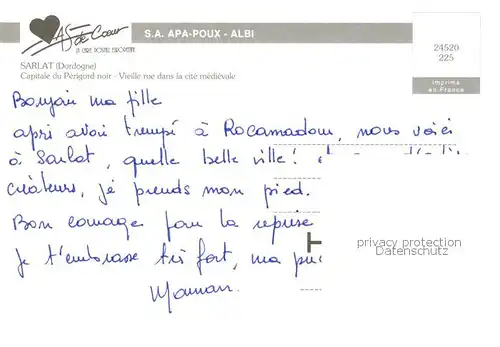 As de Cœur
LA CARTE POSTALE EUROPÉENNE
S.A. APA-POUX - ALBI
24520
225
Imprimé
en France
SARLAT (Dordogne)
Capitale du Périgord noir - Vieille rue dans la cité médiévale
Bonjour ma fille
après avoir trempé à Rocamadour, nous voici
à Sarlat, quelle belle ville!
créateurs, je prends mon pied.
Bon courage pour la reprise
Je t'embrasse très fort, ma
Maman.
privacy protection
Datenschutz